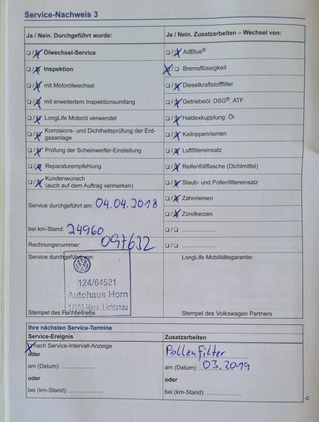 Service-Nachweis 3
Ja / Nein. Durchgeführt wurde:
Ölwechsel-Service
Inspektion
mit Motorölwechsel
mit erweitertem Inspektionsumfang
LongLife Motoröl verwendet
Korrosions- und Dichtheitsprüfung der Erd-
gasanlage
Prüfung der Scheinwerfer-Einstellung
Reparaturempfehlung
Kundenwunsch
(auch auf dem Auftrag vermerken)
Service durchgeführt am: 04.04.2018
bei km-Stand: 24960
Rechnungsnummer: 097632
Service durchgeführt von:
124/64521
Autohaus Horn
Stempel des Fachbetriebs
Ja / Nein. Zusatzarbeiten – Wechsel von:
AdBlue®
Bremsflüssigkeit
Dieselkraftstofffilter
Getriebeöl: DSG®, ATF
Haldexkupplung: Öl
Keilrippenriemen
Luftfiltereinsatz
Reifenfüllflasche (Dichtmittel)
Staub- und Pollenfiltereinsatz
Zahnriemen
Zündkerzen
LongLife Mobilitätsgarantie:
Stempel des Volkswagen Partners
Ihre nächsten Service-Termine
Service-Ereignis
nach Service-Intervall-Anzeige
oder
am (Datum):
oder
bei (km-Stand):
Zusatzarbeiten
Pollenfilter
am (Datum): 03.2019
oder
bei (km-Stand):